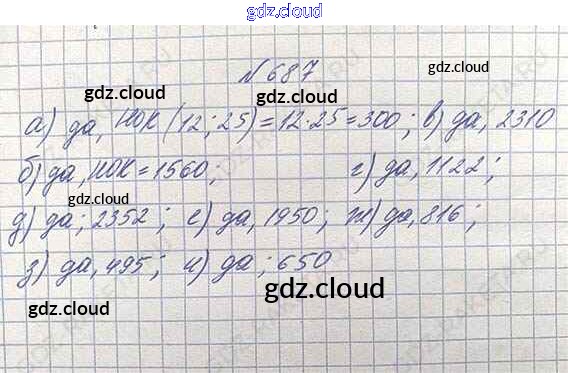 gdz.cloud
№ 687
gdz.cloud
gdz.cloud
gdz.cloud
а) да, НОК (12; 25) = 12·25 = 300; в) да, 2310
б) да, НОК = 1560; г) да, 1122;
gdz.cloud
gdz.cloud
д) да; 2352; е) да, 1950; ж) да, 816;
з) да, 495; и) да; 650
gdz.cloud
gdz.cloud